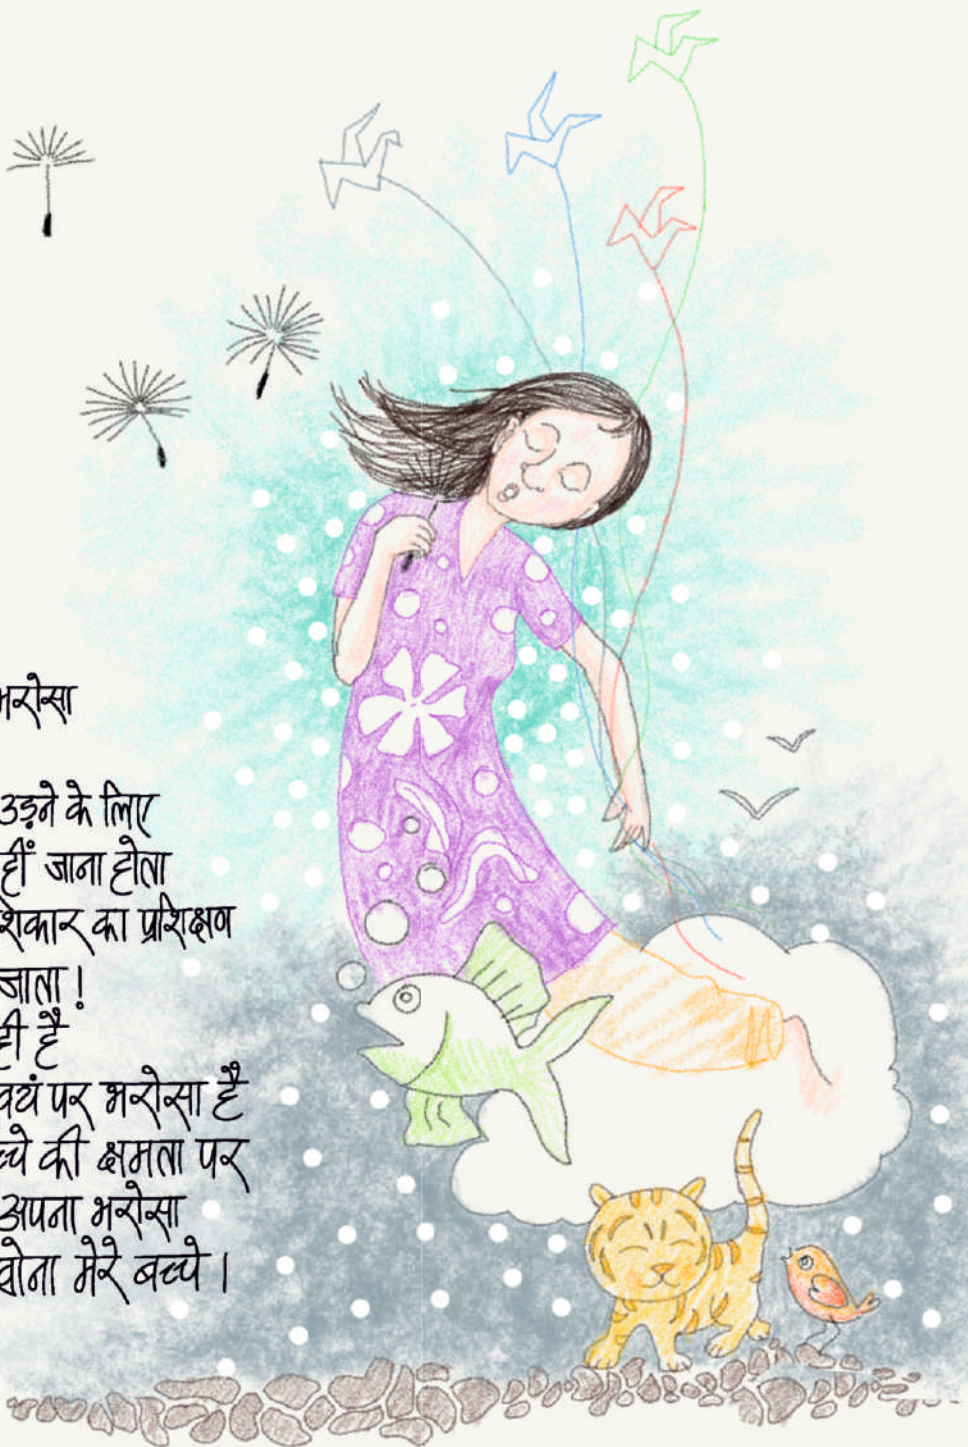 भरोसा
उड़ने के लिए
हीं जाना होता
शिकार का प्रशिक्षण
जाता!
ही है
वयं पर भरोसा है
च्चे की क्षमता पर
अपना भरोसा
खोना मेरे बच्चे।